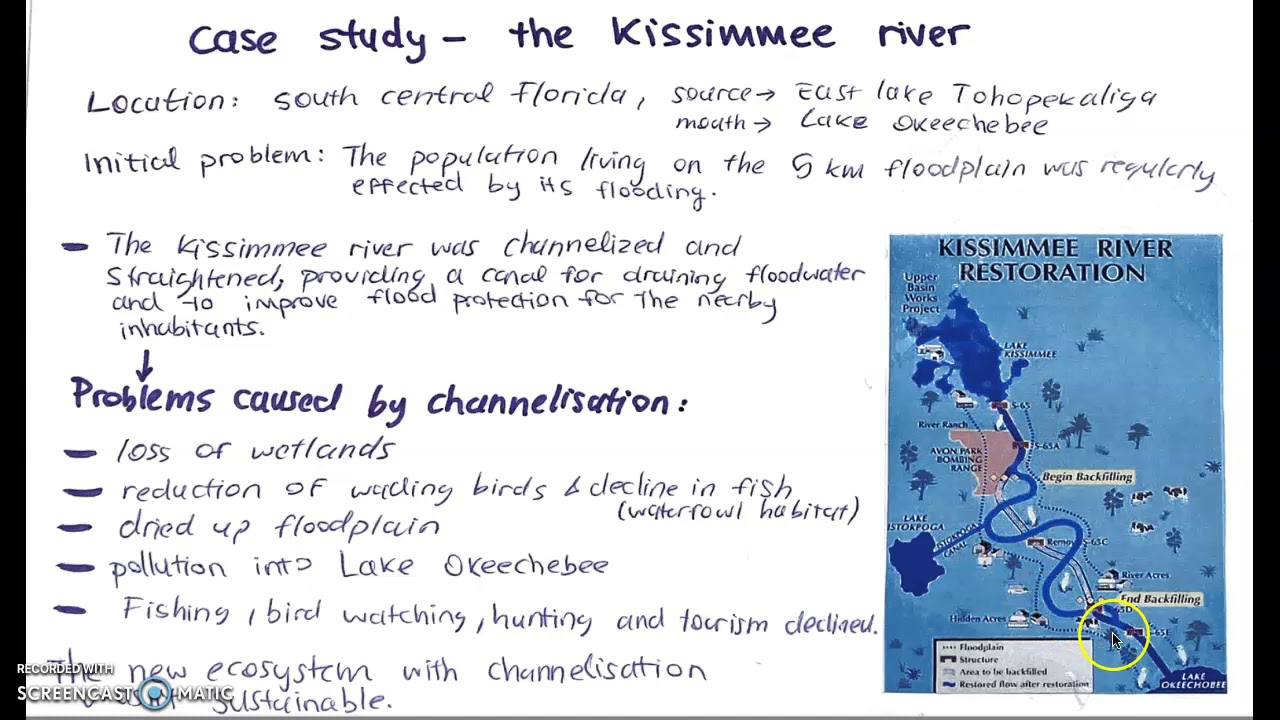 Case study - the Kissimmee river
Location: South central Florida, source → East lake Tohopekaliga
mouth → Lake Okeechebee
Initial problem: The population living on the 5 km floodplain was regularly
effected by its flooding.
- The Kissimmee river was channelized and
straightened, providing a canal for draining floodwater
and to improve flood protection for the nearby
inhabitants.
↓
Problems caused by channelisation:
- loss of wetlands
- reduction of wading birds & decline in fish
(waterfowl habitat)
- dried up floodplain
- pollution into Lake Okeechebee
- Fishing, bird watching, hunting and tourism declined.
The new ecosystem with channelisation
sustainable.
KISSIMMEE RIVER
RESTORATION
Upper
Basin
Works
Project
LAKE
KISSIMMEE
S-65
River Ranch
S-65A
AVON PARK
BOMBING
RANGE
Begin Backfilling
LAKE
ISTOKPOGA
ISTOKPOGA
CANAL
Remove S-65C
River Acres
End Backfilling
65D
Hidden Acres
S-65E
Floodplain
Structure
Area to be backfilled
Restored flow after restoration
LAKE
OKEECHOBEE
RECORDED WITH
SCREENCAST MATIC